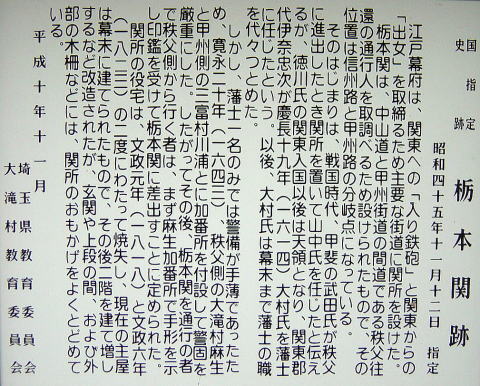 国指定
史跡
栃本関跡
昭和四十五年十一月十二日 指定
江戸幕府は、関東への「入り鉄砲」と関東からの
「出女」を取締るため主要な街道に関所を設けた。
栃本関は、中山道と甲州街道の間道である秩父往
還の通行人を取調べるため設けられたもので、その
位置は信州路と甲州路の分岐点になっている。
そのはじまりは、戦国時代、甲斐の武田氏が秩父
に進出したとき関所を置いて山中氏を任じたと伝え
るが、徳川氏の関東入国以後は天領となり、関東郡
代伊奈忠次が慶長十九年（一六一四）大村氏を藩士
に任じたという。以後、大村氏は幕末まで藩士の職
を代々つとめた。
しかし、藩士一名のみでは警備が手薄であったた
め、寛永二十年（一六四三）、秩父側の大滝村麻生
と甲州側の三富村川浦とに加番所を付設して警固を
厳重にした。したがってその後、栃本関を通行の者
で秩父側から行く者は、まず麻生加番所で手形を示
し印鑑を受けて栃本関に差出すことに定められた。
関所の役宅は、文政元年（一八一八）と文政六年
（一八二三）の二度にわたって焼失し、現在の主屋
は幕末に建てられたもので、その後二階を建て増し
するなど改造されたが、玄関や上段の間、および外
部の木柵などには、関所のおもかげをよくとどめて
いる。
平成十年十一月
埼玉県教育委員会
大滝村教育委員会